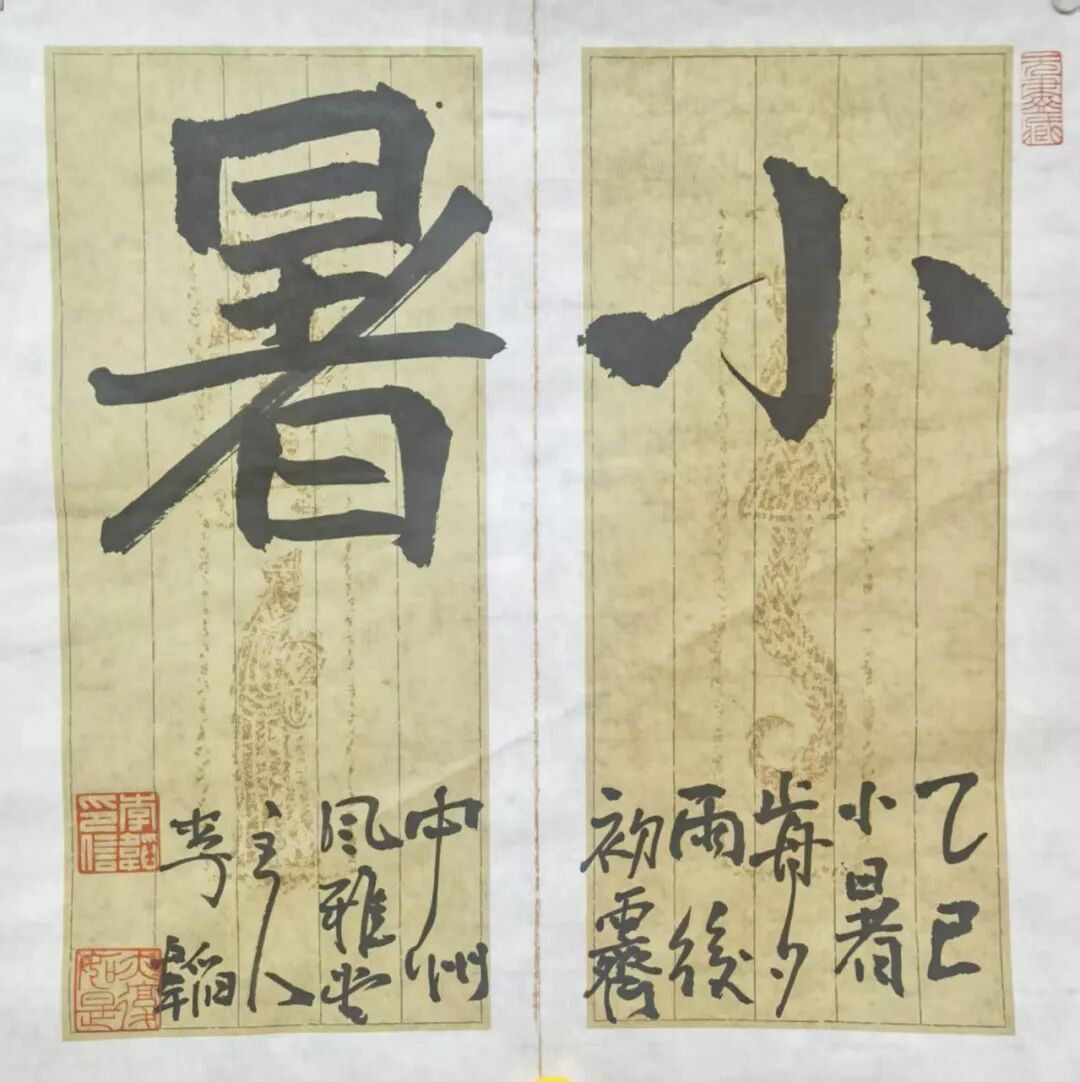 小
乙巳
小暑
歬夕
雨後
初霽
暑
中州
風雅堂
主人
李韜
李韜印信